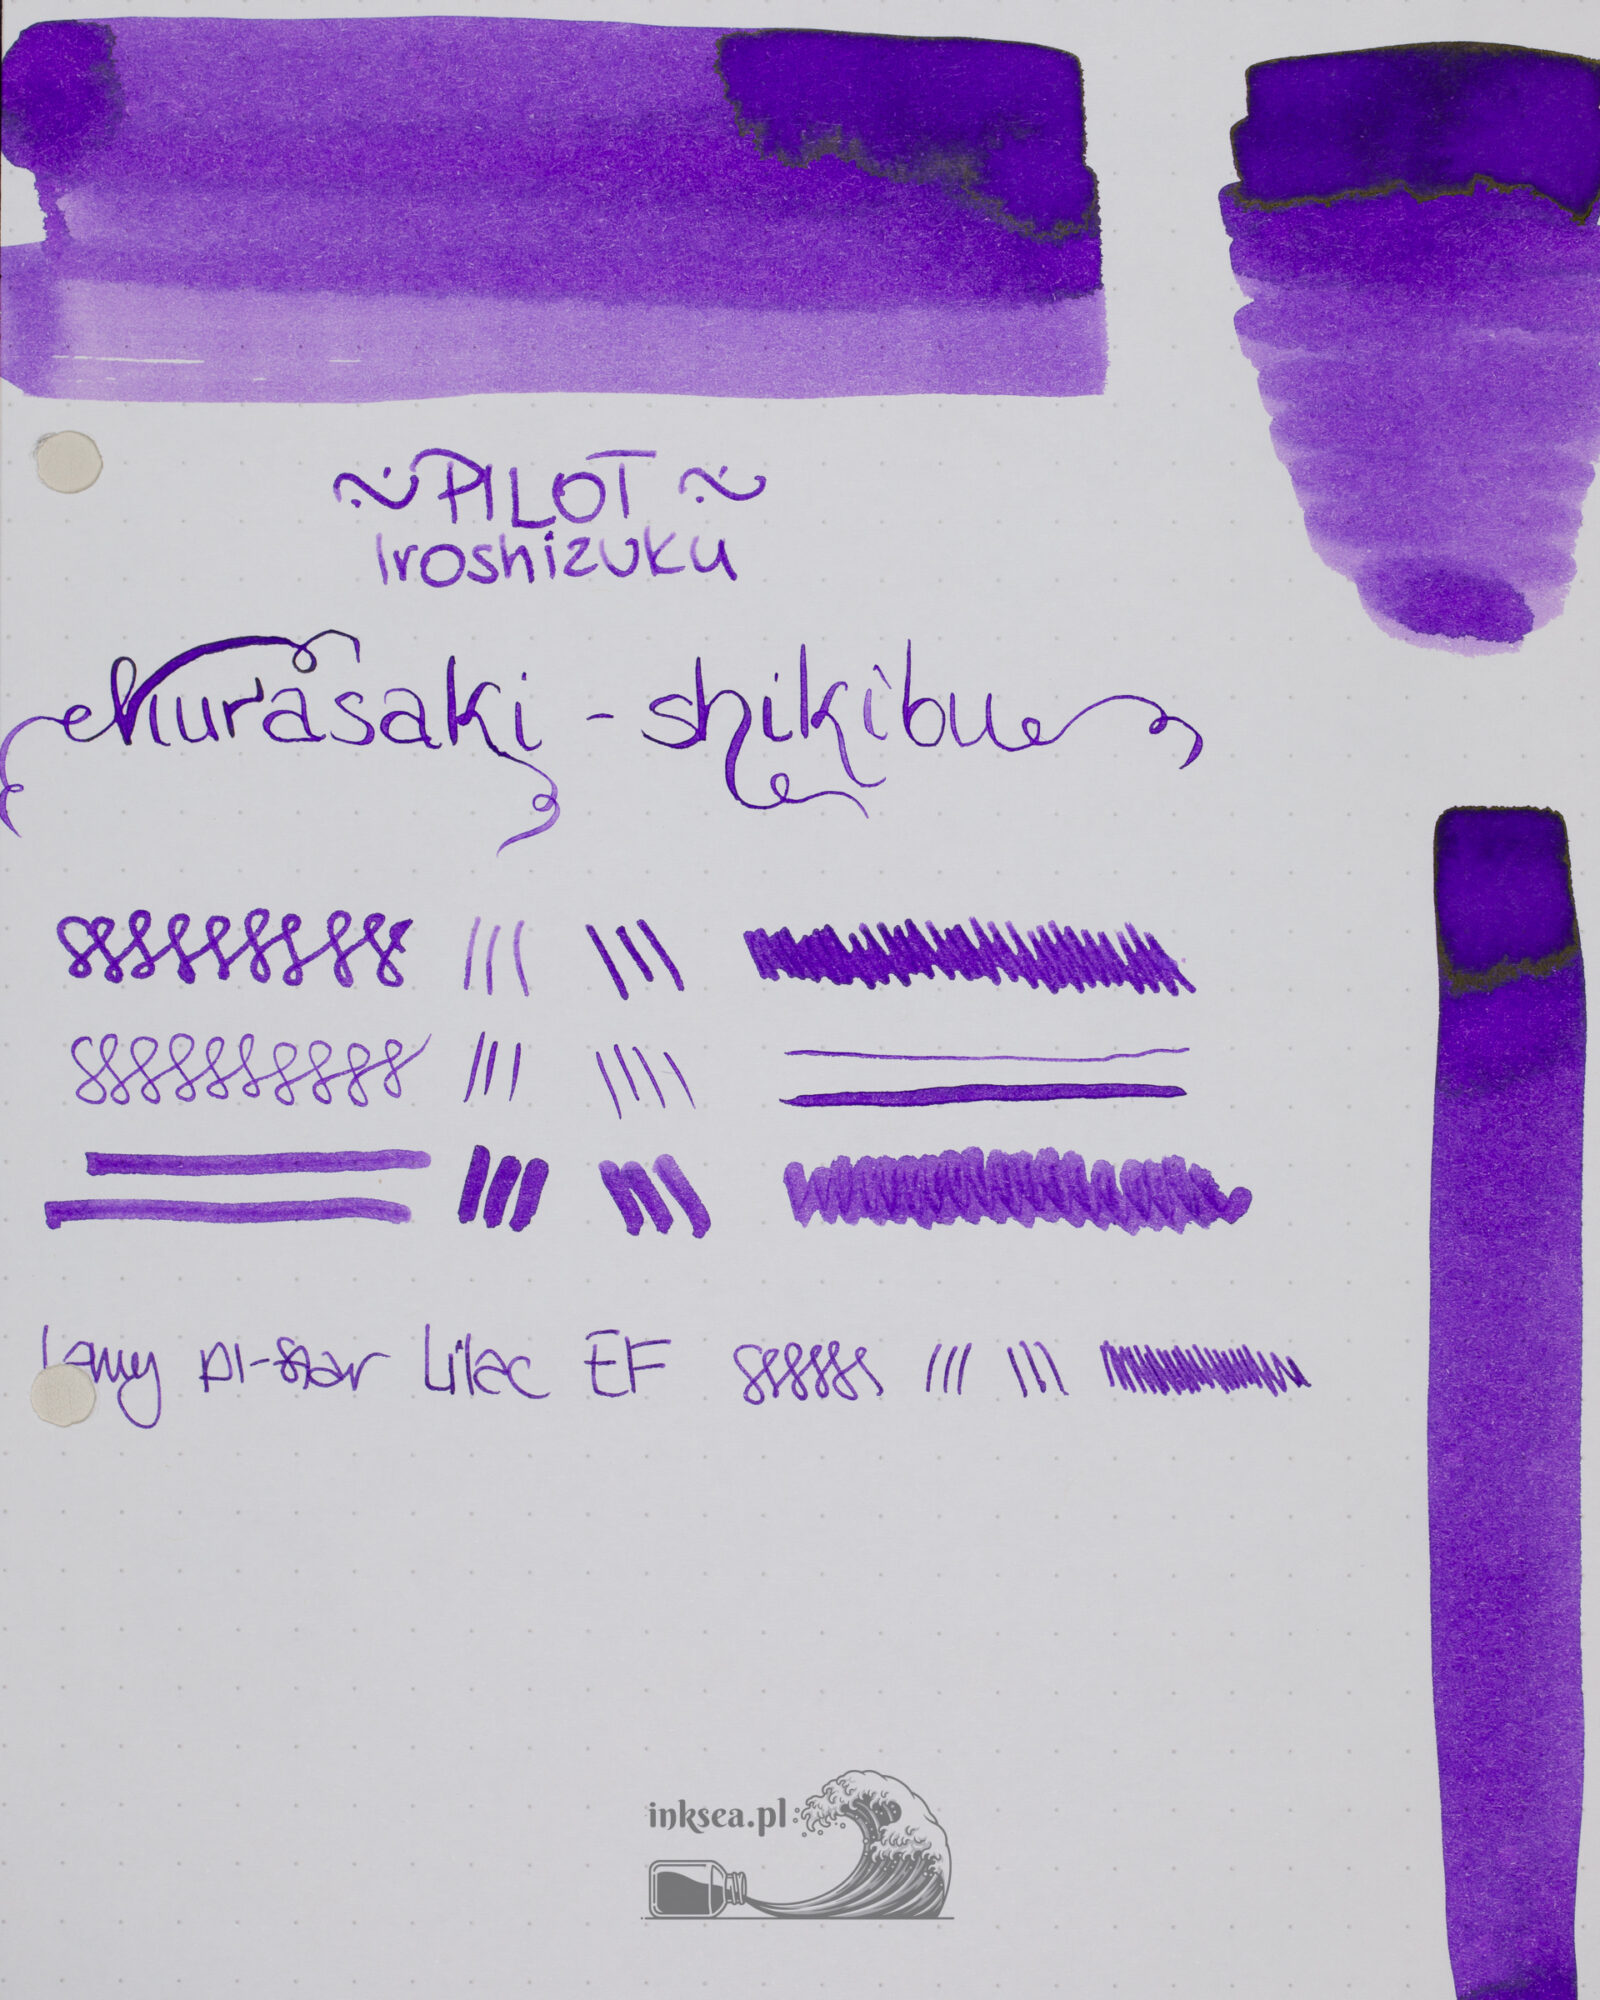 ~ PILOT ~
Iroshizuku
Murasaki - shikibu
Lamy Al-star Lilac EF
inksea.pl